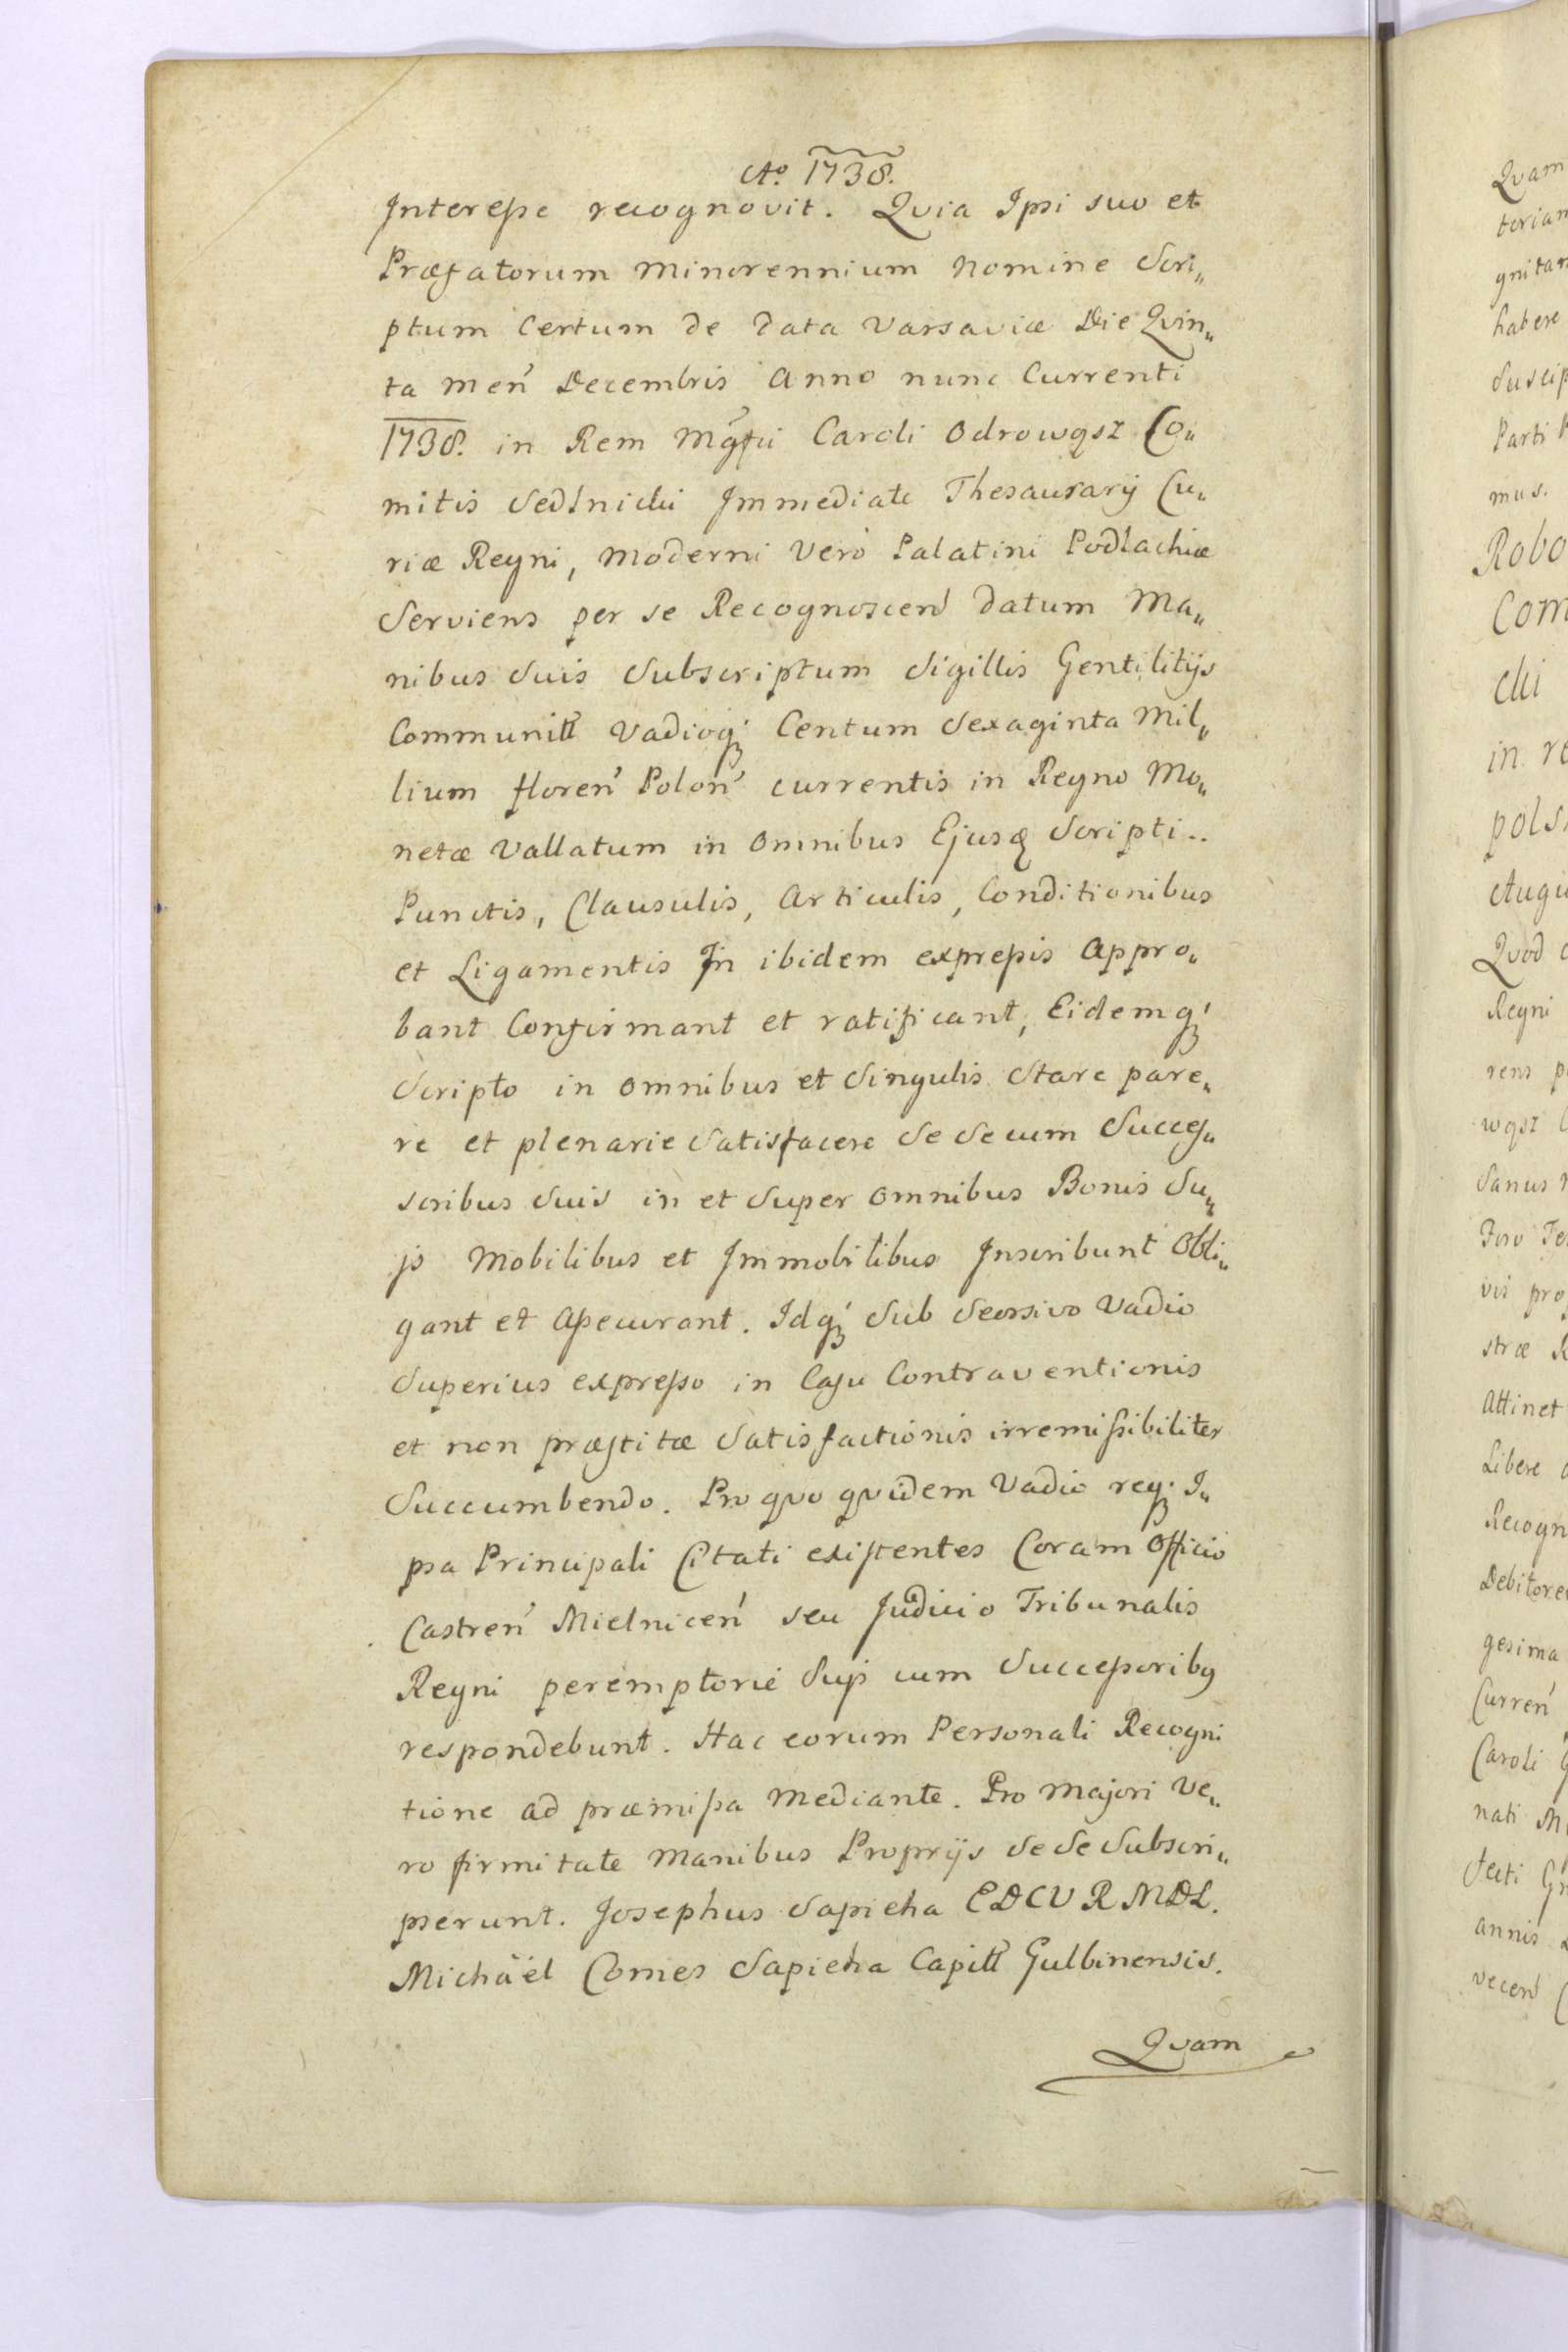 Ao. 1738.
Interesse recognovit. Qvia Ipsi suo et
Præfatorum Minorennium Nomine Scri„
ptum Certum de Data Varsaviæ Die Qvin„
ta Men̄ Decembris Anno nunc Currenti
1738. in Rem Mgfci Caroli Odrowąsz Co„
mitis Sedlnicki Immediate Thesaurarij Cu„
riæ Regni, Moderni Vero Palatini Podlachiæ
Serviens per se Recognoscen̄ Datum Ma„
nibus Suis Subscriptum Sigillis Gentilitijs
Communitt Vadioq; Centum Sexaginta Mil„
lium floren̄ Polon̄ currentis in Regno Mo„
netæ Vallatum in Omnibus Ejusq Scripti..
Punctis, Clausulis, Articulis, Conditionibus
et Ligamentis In ibidem expressis Appro„
bant Confirmant et ratificant, Eidemq;
Scripto in omnibus et Singulis Stare pare„
re et plenarie Satisfacere Se Secum Succes„
soribus Suis in et Super Omnibus Bonis Su„
js Mobilibus et Immobilibus Inscribunt Obli„
gant et Assecurant. Idq; Sub Seorsivo Vadio
Superius expresso in Casu Contraventionis
et non præstitæ Satisfactionis irremissibiliter
Succumbendo. Pro qvo qvidem Vadio req; I„
psa Principali Citati existentes Coram Officio
Castren̄ Mielnicen̄ seu Judicio Tribunalis
Regni peremptorie Sujs cum Successoribq
respondebunt. Hac eorum Personali Recogni
tione ad præmissa Mediante. Pro Majori Ve„
ro firmitate Manibus Proprijs Se Se Subscri„
pserunt. Josephus Sapieha EDCVRMDL.
Michaël Comes Sapieha Capitt Gulbinensis.
Qvam
Qvam
habere
Parti
mus.
chi
in
Qvod
Regni
Attinet
Libere
Recogn
gesima
Curren̄
Caroli
nati
annis